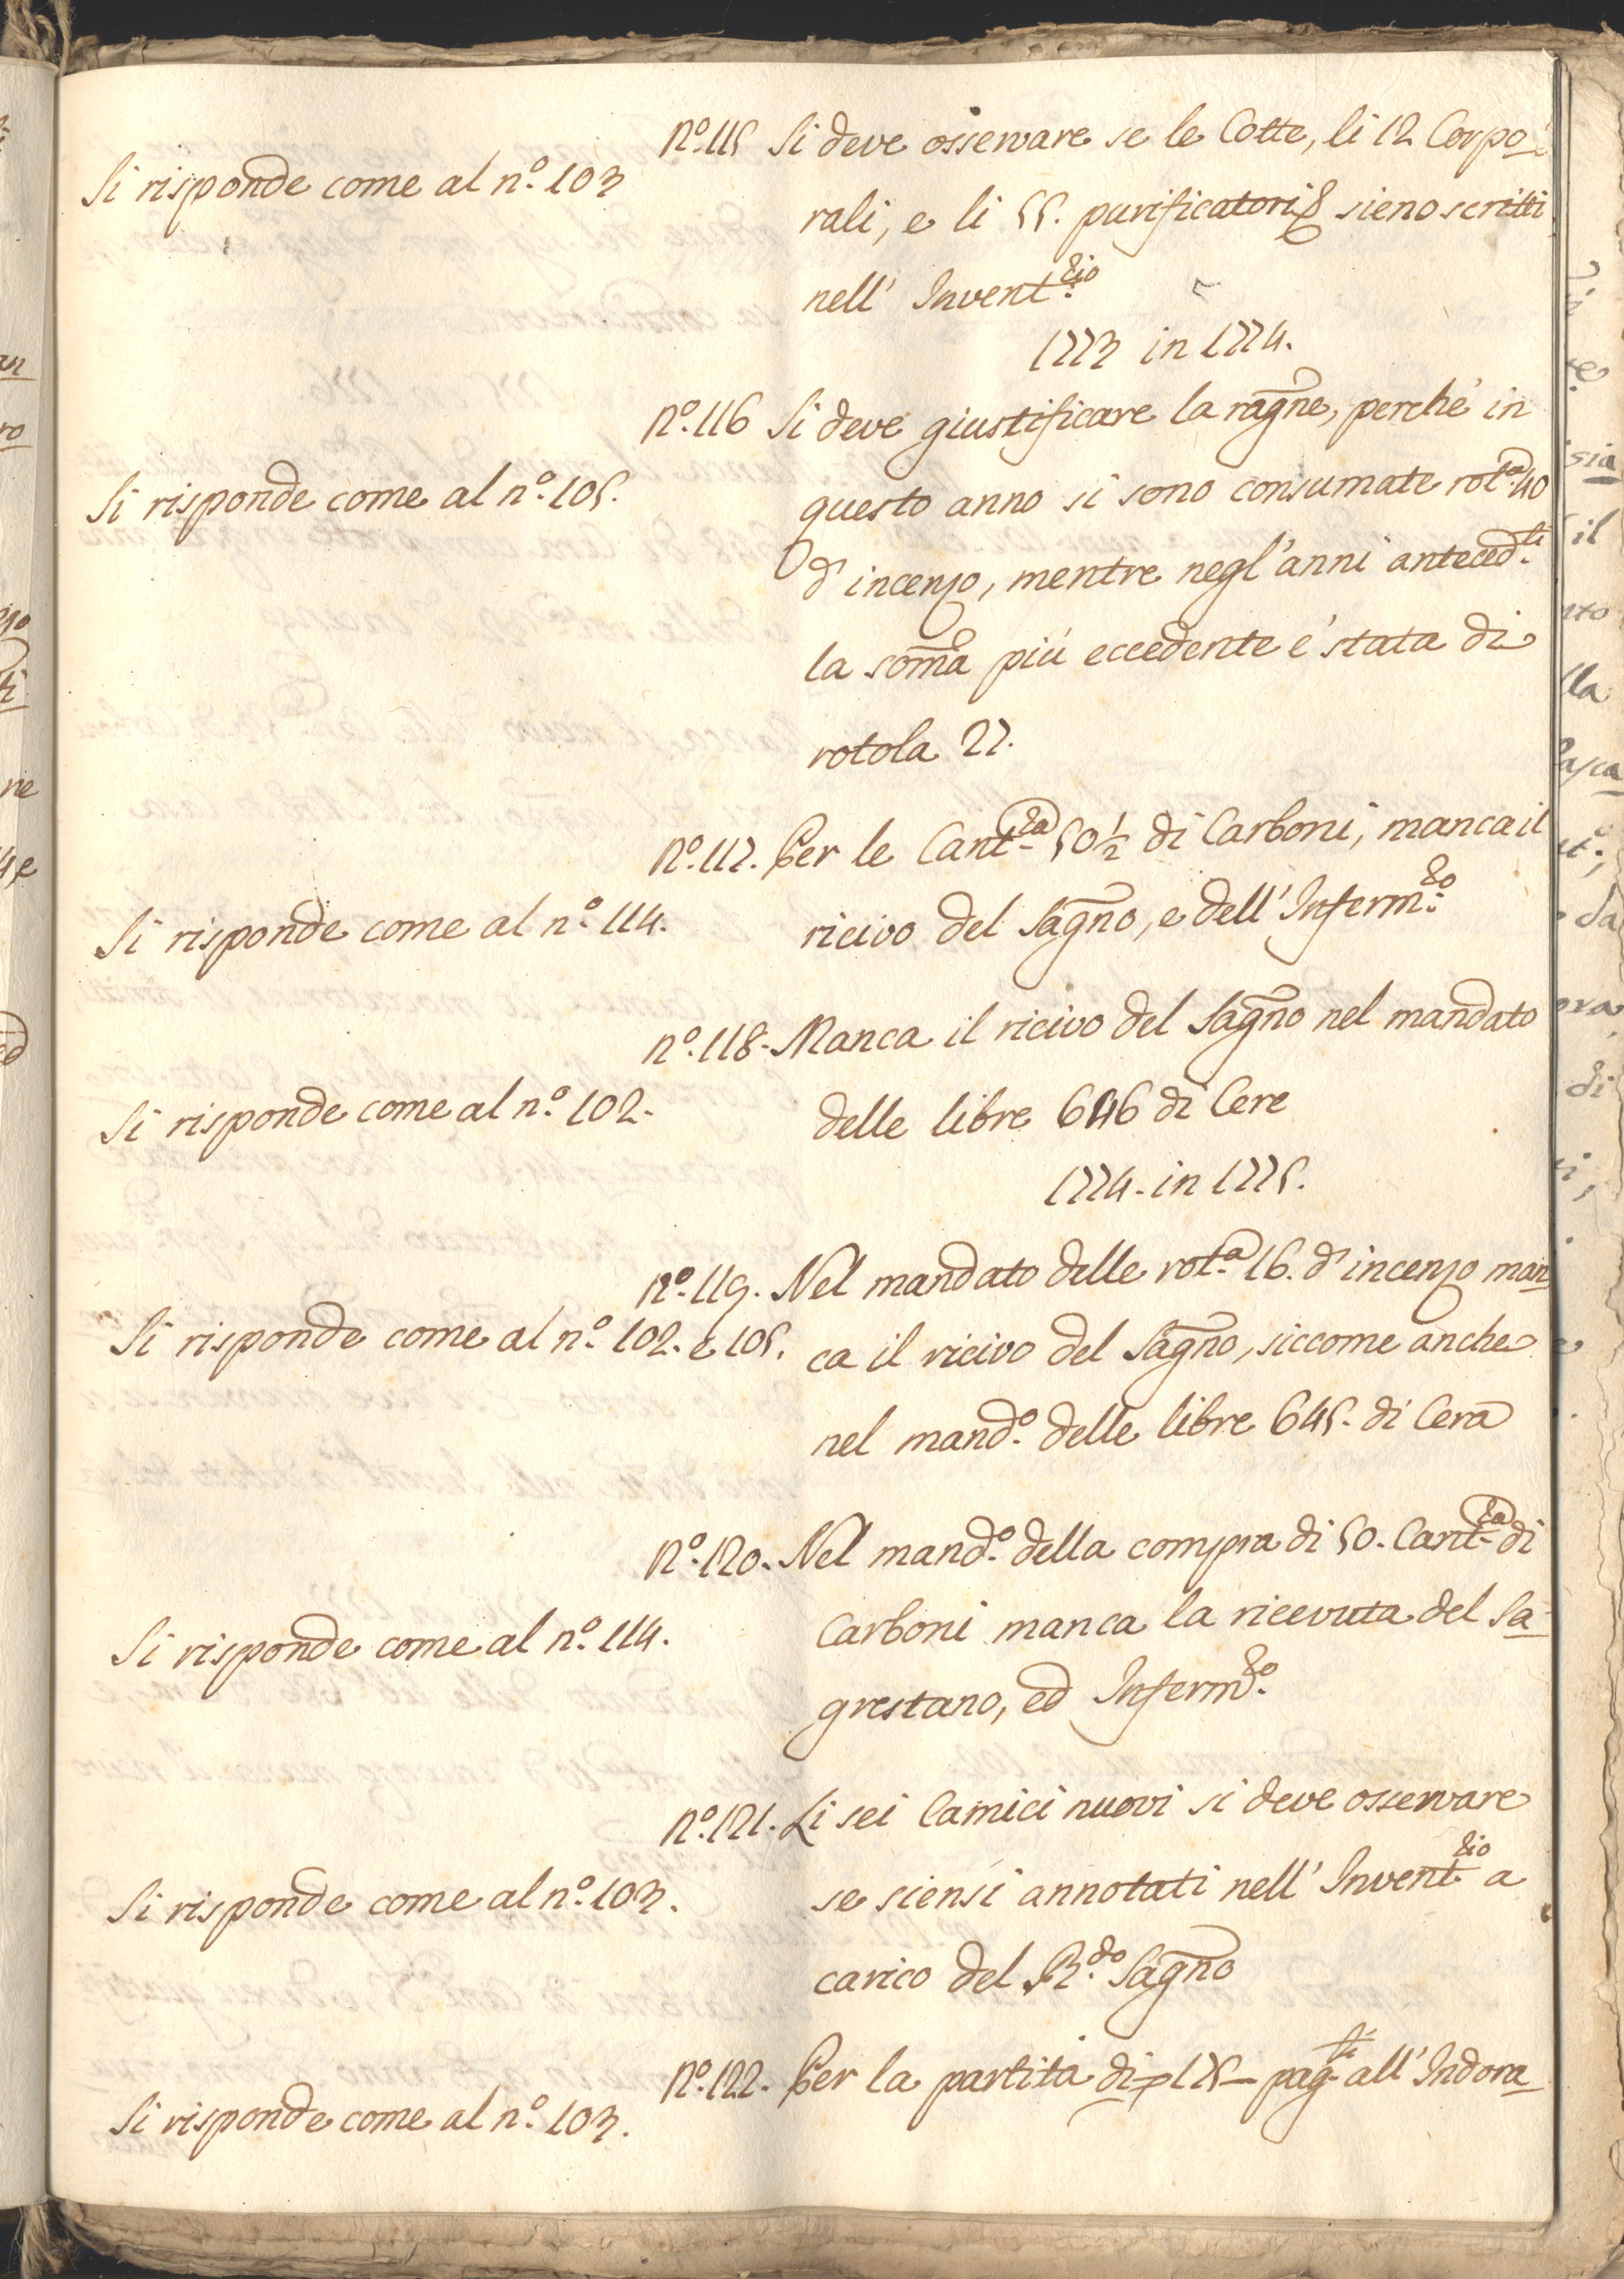 Nº. 115 Si deve osservare se le Cotte, li 12 Corpo-
Si risponde come al nº. 103
rali, e li 55. purificatorij sieno scritti
nell' Invent.rio
1773 in 1774.
Nº. 116 Si deve giustificare la ragne, perchè in
Si risponde come al nº. 105.
questo anno si sono consumate rot.a 40
d' incenzo, mentre negl' anni anteced.ti
la soma più eccedente è stata di
rotola 27.
Nº. 117. Per le Cant.ra 50 1/2 di Carboni, manca il
Si risponde come al nº. 114.
ricivo del Sagno, e dell' Inferm.ro
nº. 118. Manca il ricivo del Sagno nel mandato
Si risponde come al nº. 102.
delle libre 646 di Cere
1774. in 1775.
nº. 119. Nel mandato delle rot.a 16. d' incenzo man
Si risponde come al nº. 102. e 105.
ca il ricivo del Sagno, siccome anche
nel mand.o delle libre 645. di Cera
Nº. 120. Nel mand.o della compra di 50. Cant.ra di
Si risponde come al nº. 114.
Carboni manca la ricevuta del Sa-
grestano, ed Inferm.ro
nº. 121. Li sei Camici nuovi si deve osservare
Si risponde come al nº. 103.
se siensi annotati nell' Invent.rio a
carico del R.do Sagno
Nº. 122. Per la partita di 175 pag.ti all' Indora-
Si risponde come al nº. 103.